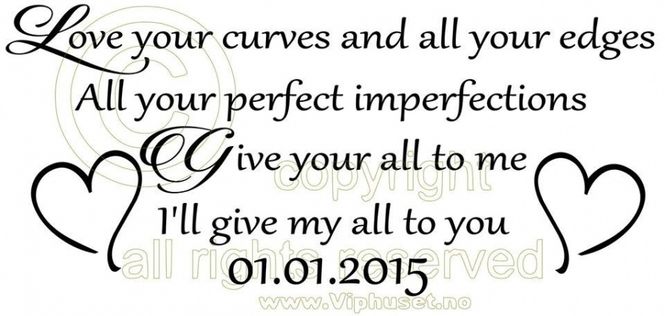 Love your curves and all your edges
All your perfect imperfections
Give your all to me
copyright
I'll give my all to you
all rights reserved
01.01.2015
www.Viphuset.no